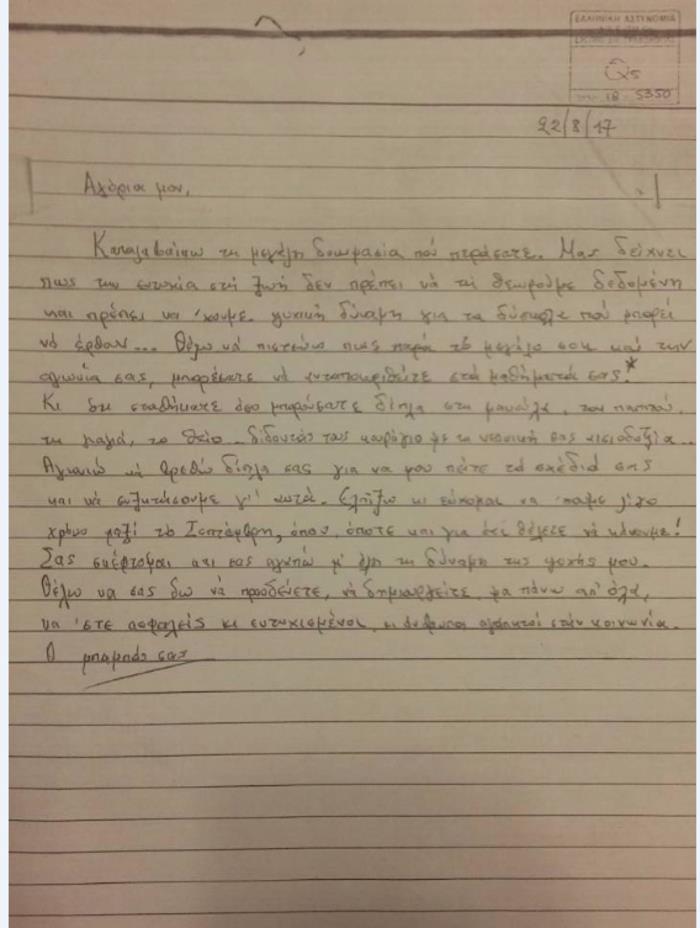 ΕΛΛΗΝΙΚΗ ΑΣΤΥΝΟΜΙΑ
Q5
18 - 5350
22/8/17
Αγόρια μου,
Καταλαβαίνω τη μεγάλη δοκιμασία που περάσατε. Μας δείχνει
πως την ευτυχία στη ζωή δεν πρέπει να τη θεωρούμε δεδομένη
και πρέπει να 'χουμε ψυχική δύναμη για τα δύσκολα που μπορεί
να έρθουν... Θέλω να πιστεύω πως παρά το μεγάλο σοκ και την
αγωνία σας, μπορέσατε να ανταποκριθείτε στα μαθήματά σας.*
Κι αν σταθήκατε όσο μπορούσατε δίπλα στη μανούλα, τον παππού,
τη γιαγιά, το θείο... δίδοντάς τους κουράγιο με τη νεανική σας αισιοδοξία...
Αγωνιώ να βρεθώ δίπλα σας για να μου πείτε τα σχέδιά σας
και να συζητήσουμε γι' αυτά. Ελπίζω κι εύχομαι να 'παμε λίγο
χρόνο μαζί το Σεπτέμβρη, όπου, όποτε και για ό,τι θέλετε να κάνουμε!
Σας σκέφτομαι και σας αγαπώ μ' όλη τη δύναμη της ψυχής μου.
Θέλω να σας δω να προοδεύετε, να δημιουργείτε, μα πάνω απ' όλα,
να 'στε ασφαλείς κι ευτυχισμένοι, κι άνθρωποι αγαπητοί στην κοινωνία.
Ο μπαμπάς σας